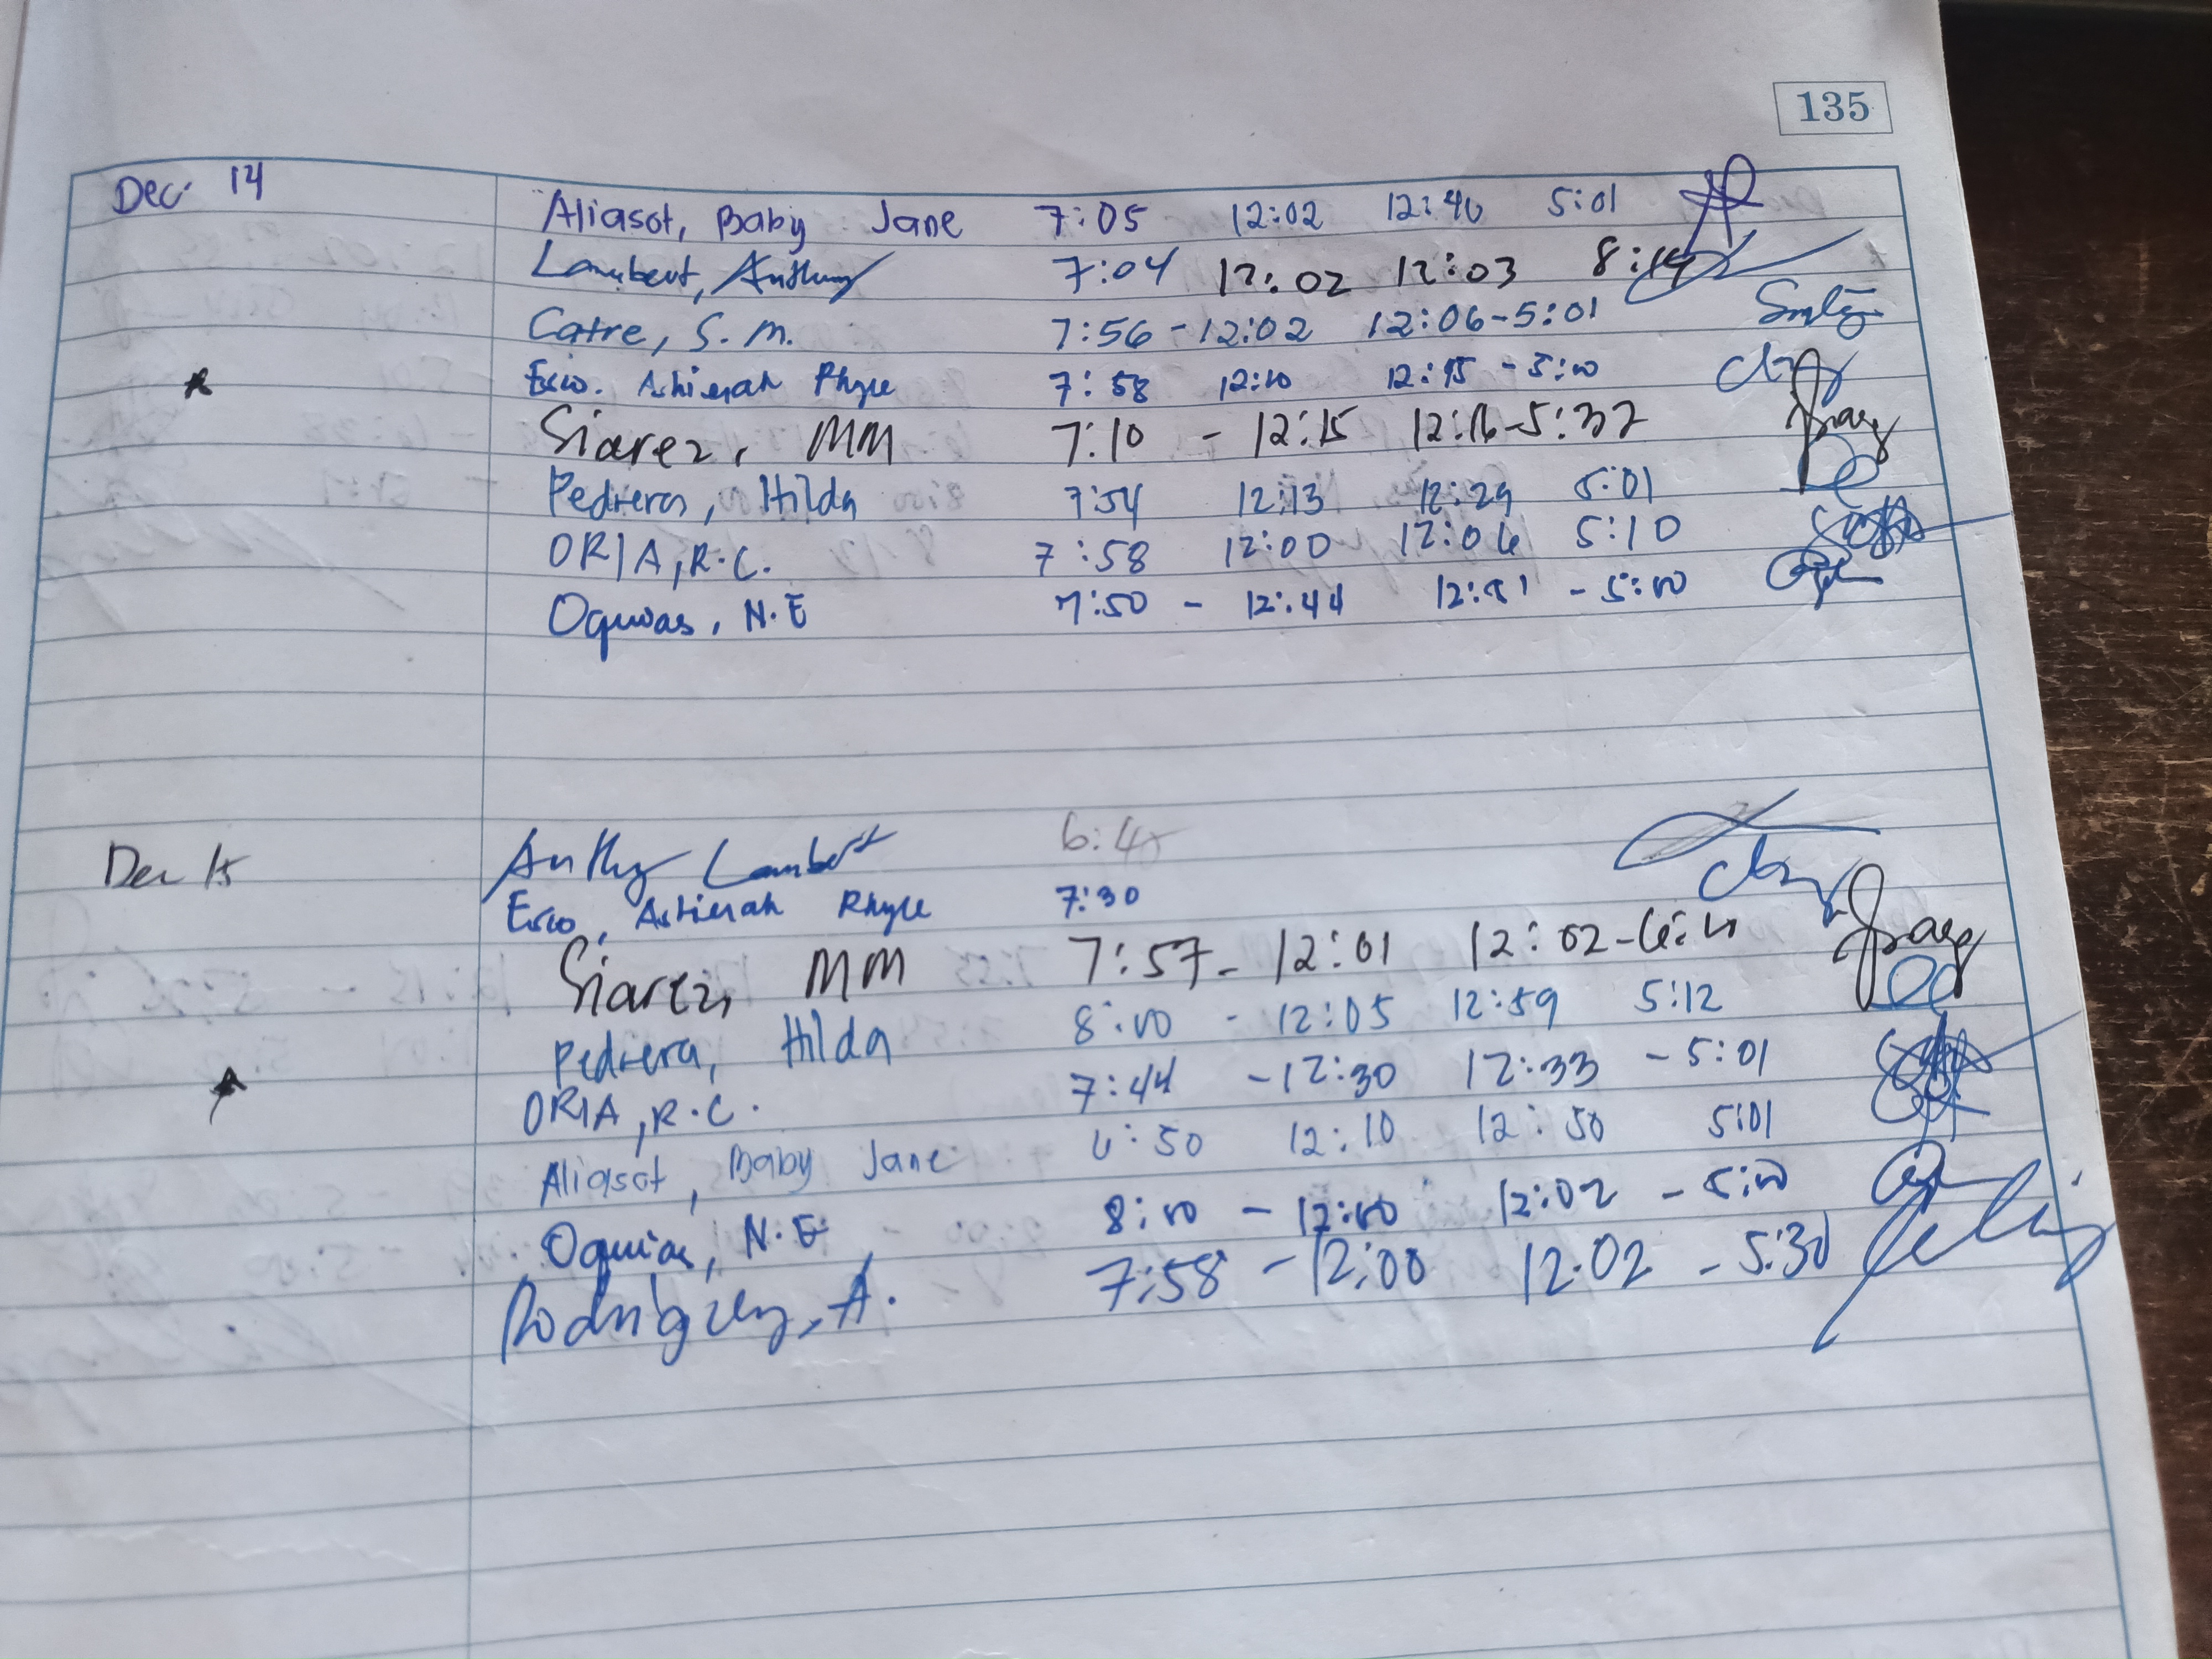 135
Dec. 14
Aliasot, Baby Jane 7:05 12:02 12:40 5:01
Lambert, Anthony 7:04 12:02 12:03 8:14
Catre, S. M. 7:56 - 12:02 12:06 - 5:01
7:58 12:10 - 5:00
Siarez, MM 7:10 - 12:15 12:16 - 5:32
Pedrera, Hilda 7:54 12:13 12:29 5:01
ORIA, R.C. 7:58 12:00 12:06 5:10
N.E 7:50 - 12:44 - 5:00
Dec 15
Anthony Lambert
7:30
Siarez, MM 7:57 - 12:01 12:02 -
Pedrera, Hilda 8:00 - 12:05 12:59 5:12
ORIA, R.C. 7:44 - 12:30 12:33 - 5:01
Aliasot, Baby Jane 6:50 12:10 12:50 5:01
N.E 8:00 - 12:00 12:02 - 5:00
Rodriguez, A. 7:58 - 12:00 12:02 - 5:30